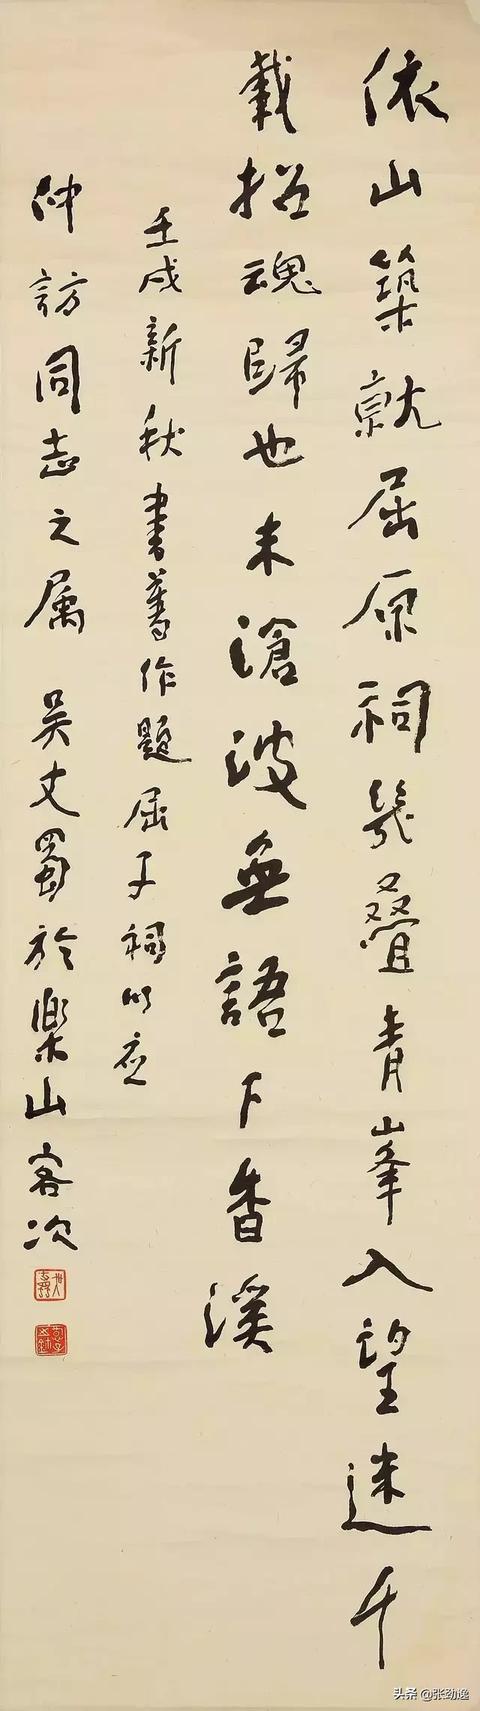 依山築就屈原祠幾叠青峯入望迷千
載招魂歸也未滄波無語下香溪
壬戌新秋書舊作題屈子祠以應
仲訪同志之属 吴丈蜀於樂山客次
头条 @张劲逸